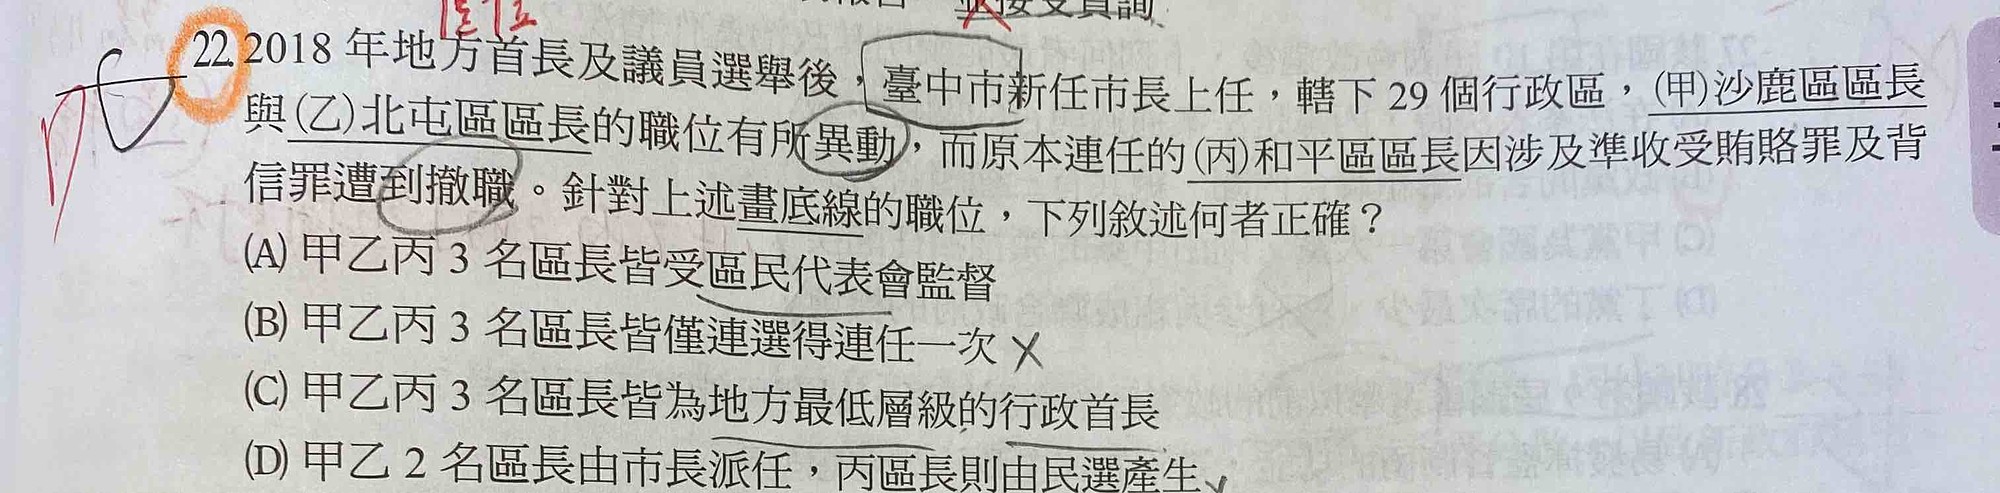 接受質詢
22. 2018 年地方首長及議員選舉後，臺中市新任市長上任，轄下 29 個行政區，(甲)沙鹿區區長
與(乙)北屯區區長的職位有所異動，而原本連任的(丙)和平區區長因涉及準收受賄賂罪及背
信罪遭到撤職。針對上述畫底線的職位，下列敘述何者正確？
(A) 甲乙丙 3 名區長皆受區民代表會監督
(B) 甲乙丙 3 名區長皆僅連選得連任一次
(C) 甲乙丙 3 名區長皆為地方最低層級的行政首長
(D) 甲乙 2 名區長由市長派任，丙區長則由民選產生